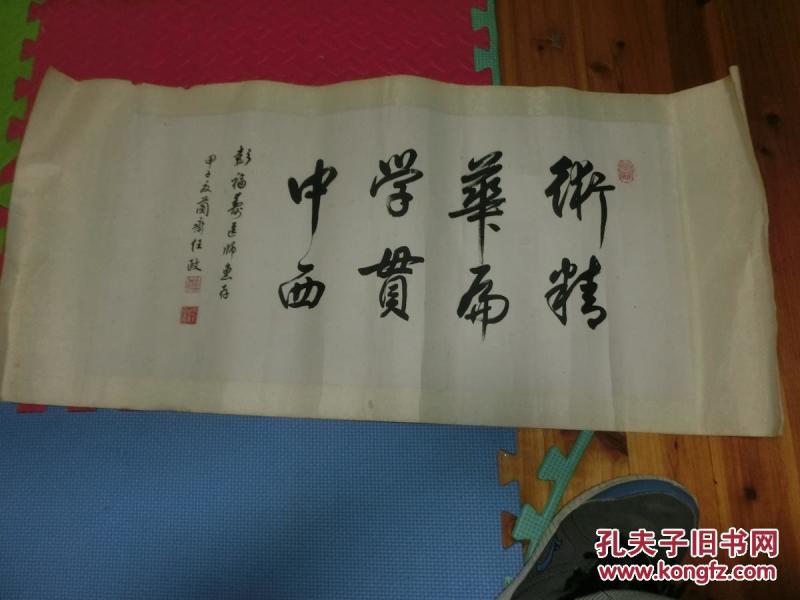 術精
華扁
学贯
中西
彭福寿医师惠存
甲子夏蘭齋任政
孔夫子旧书网
www.kongfz.com